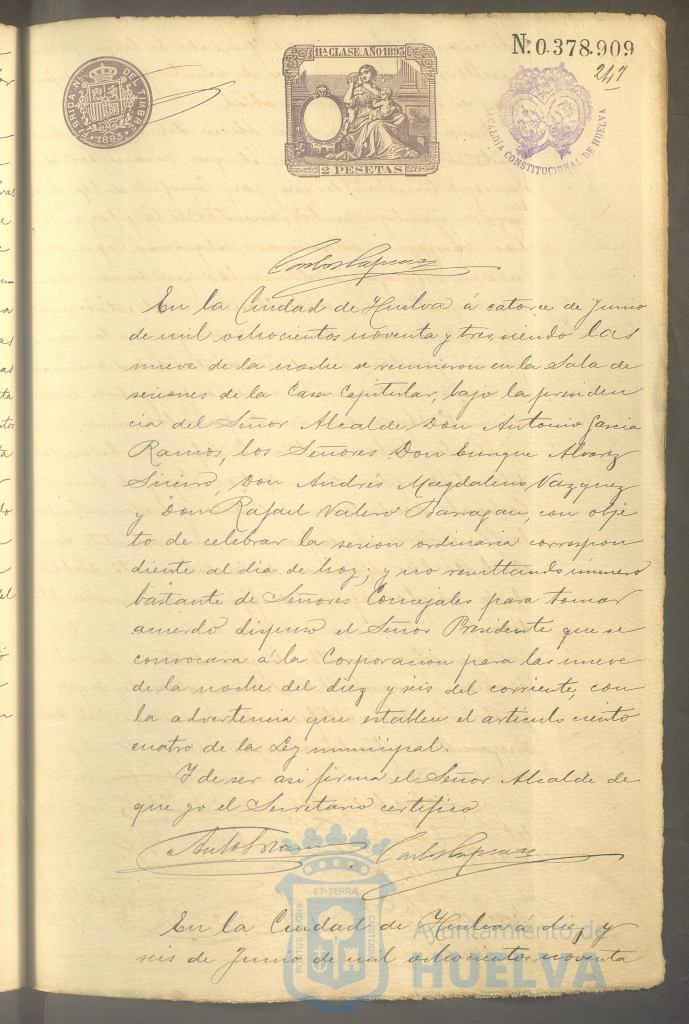 11ª CLASE. AÑO 1893
Nº 0.378.909
247
FABRICA NL. DEL TIMBRE
1893
2 PESETAS
ALCALDÍA CONSTITUCIONAL DE HUELVA
En la Ciudad de Huelva á catorce de Junio
de mil ochocientos noventa y tres siendo las
nueve de la noche se reunieron en la Sala de
sesiones de la Casa Capitular, bajo la presiden
cia del Señor Alcalde Don Antonio Garcia
Ramos, los Señores Don Enrique Alvarez
Don Andrés Magdaleno Vazquez
y Don Rafael Valero Barragan, con obje
to de celebrar la sesion ordinaria correspon
diente al dia de hoy; y no resultando número
bastante de Señores Concejales para tomar
acuerdo dispuso el Señor Presidente que se
convocara á la Corporacion para las nueve
de la noche del diez y seis del corriente, con
la advertencia que establece el articulo ciento
cuatro de la Ley municipal.
Y de ser asi firma el Señor Alcalde de
que yo el Secretario certifico.
En la Ciudad de Huelva á diez y
seis de Junio de mil ochocientos noventa
ET TERRÆ
PORTUS MARIS
CUSTODIA
Ayuntamiento de
HUELVA